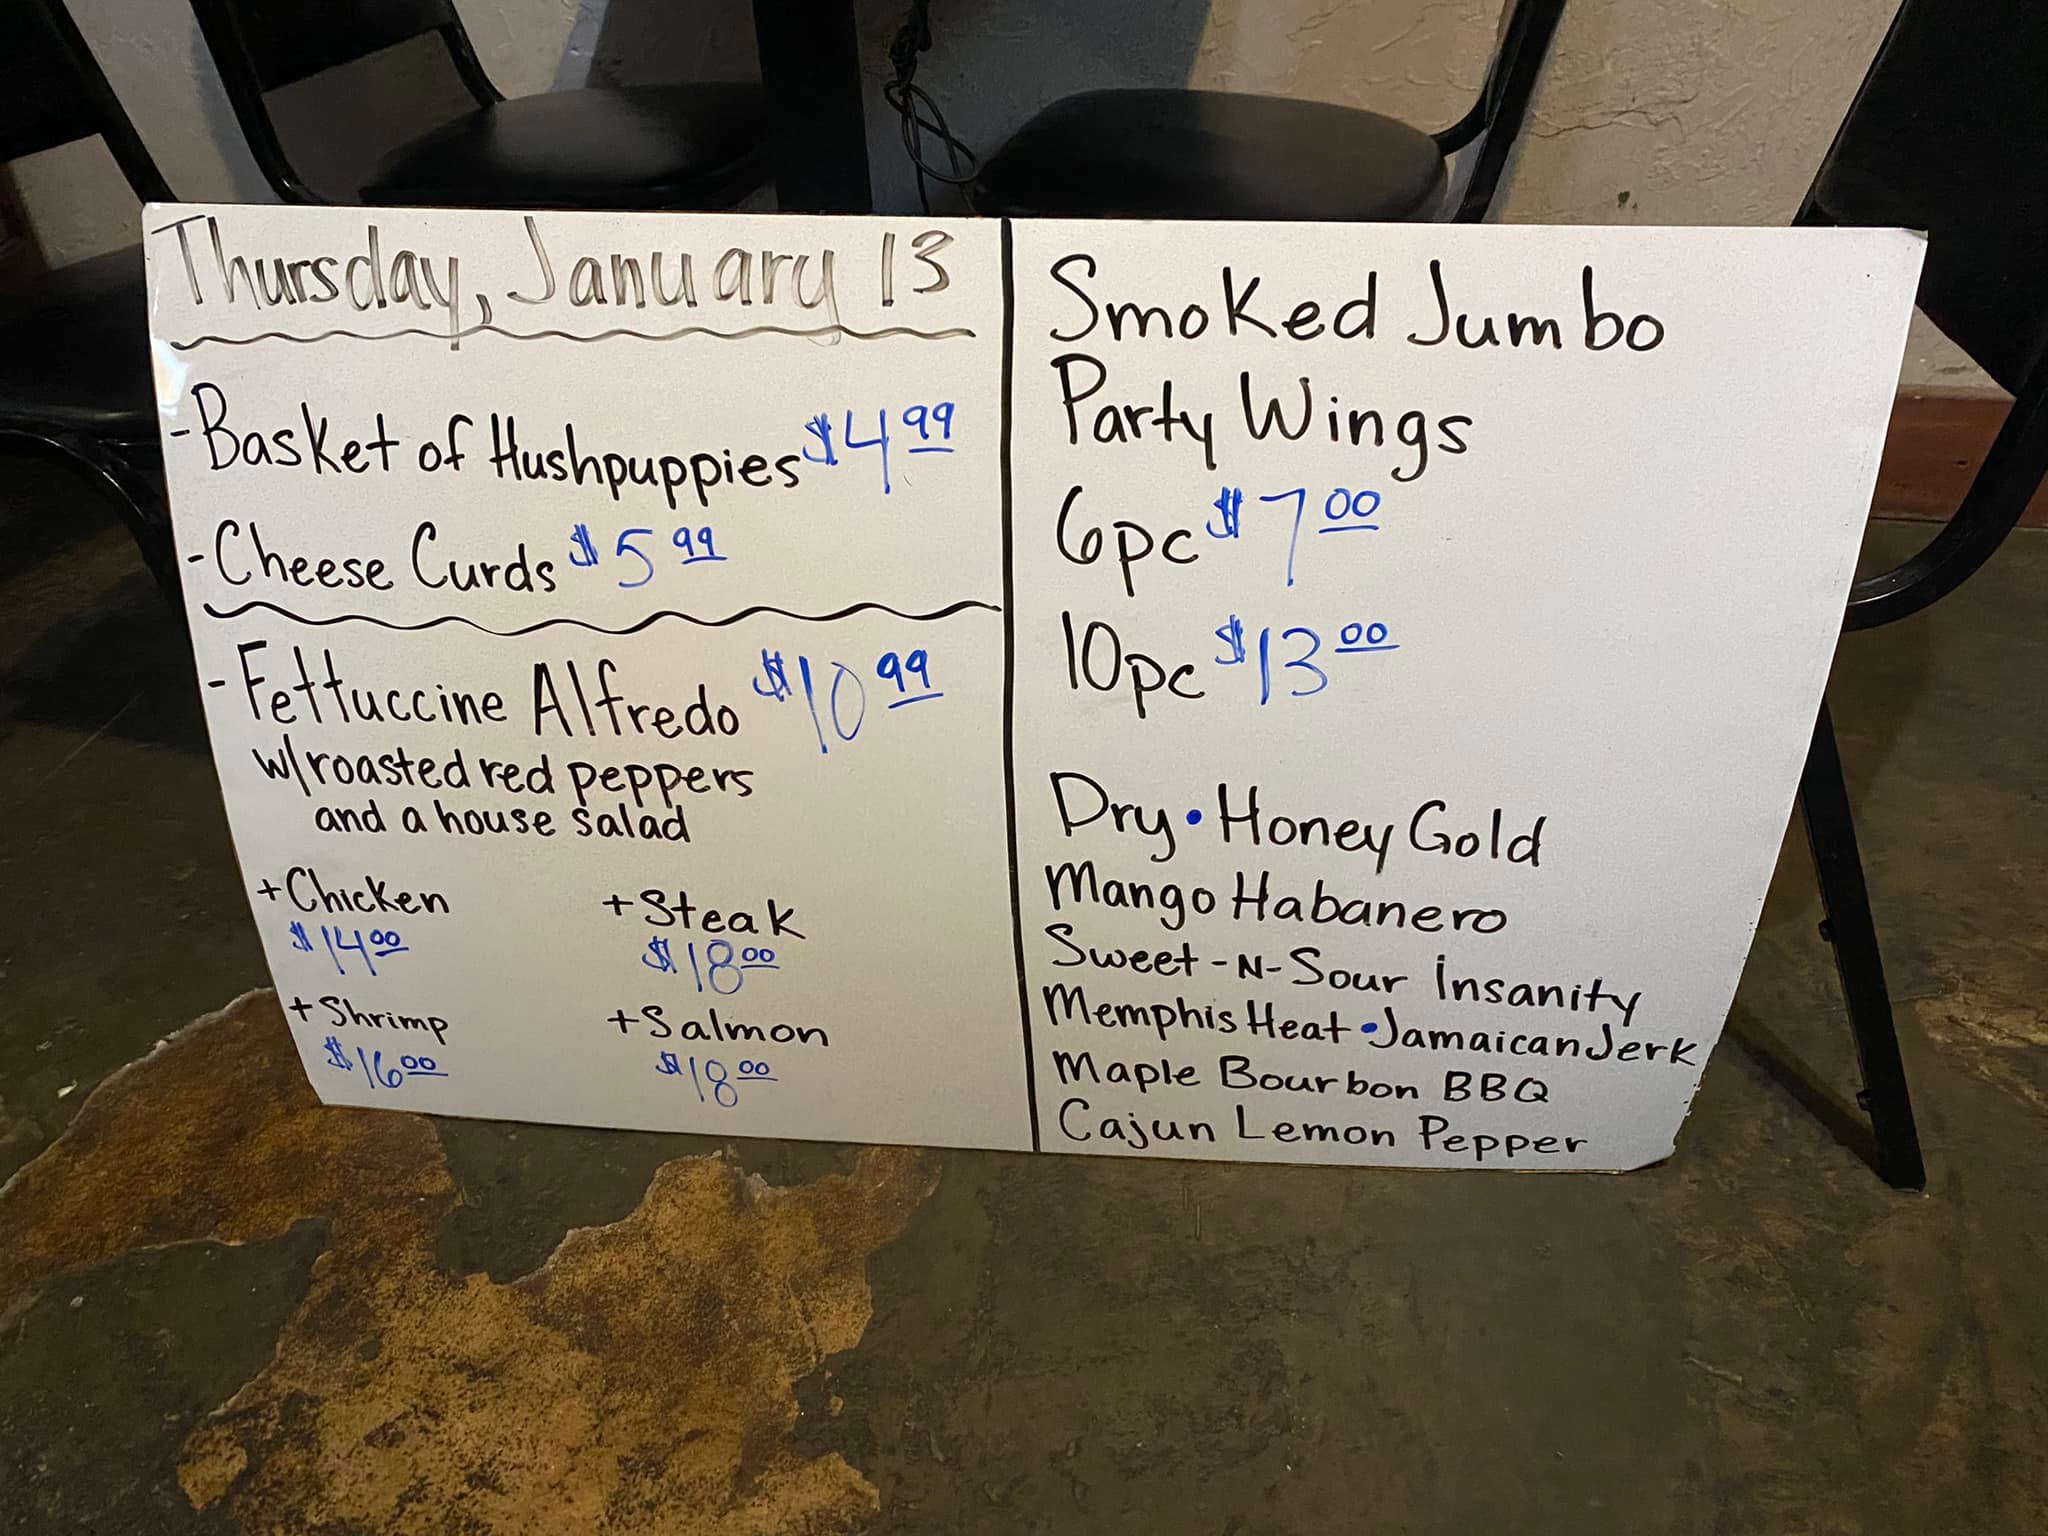 Thursday, January 13
- Basket of Hushpuppies $4.99
- Cheese Curds $5.99
- Fettuccine Alfredo $10.99
w/roasted red peppers
and a house salad
+Chicken +Steak
$14.00 $18.00
+Shrimp +Salmon
$16.00 $18.00
Smoked Jumbo
Party Wings
6pc $7.00
10pc $13.00
Dry • Honey Gold
Mango Habanero
Sweet-N-Sour Insanity
Memphis Heat • Jamaican Jerk
Maple Bourbon BBQ
Cajun Lemon Pepper